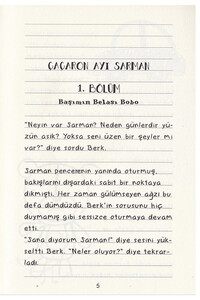 GAGARON AYI SARMAN
1. BÖLÜM
Başımın Belası Bobo
"Neyin var Sarman? Neden günlerdir yü-
zün asık? Yoksa seni üzen bir şeyler mi
var?" diye sordu Berk.
Sarman pencerenin yanında oturmuş,
bakışlarını dışardaki sabit bir noktaya
dikmişti. Her zaman gülümseyen ağzı bu
defa dümdüzdü. Berk'in sorusunu hiç
duymamış gibi sessizce oturmaya devam
etti.
"Sana diyorum Sarman!" diye sesini yük-
seltti Berk. "Neler oluyor?" diye tekrar-
ladı.
5